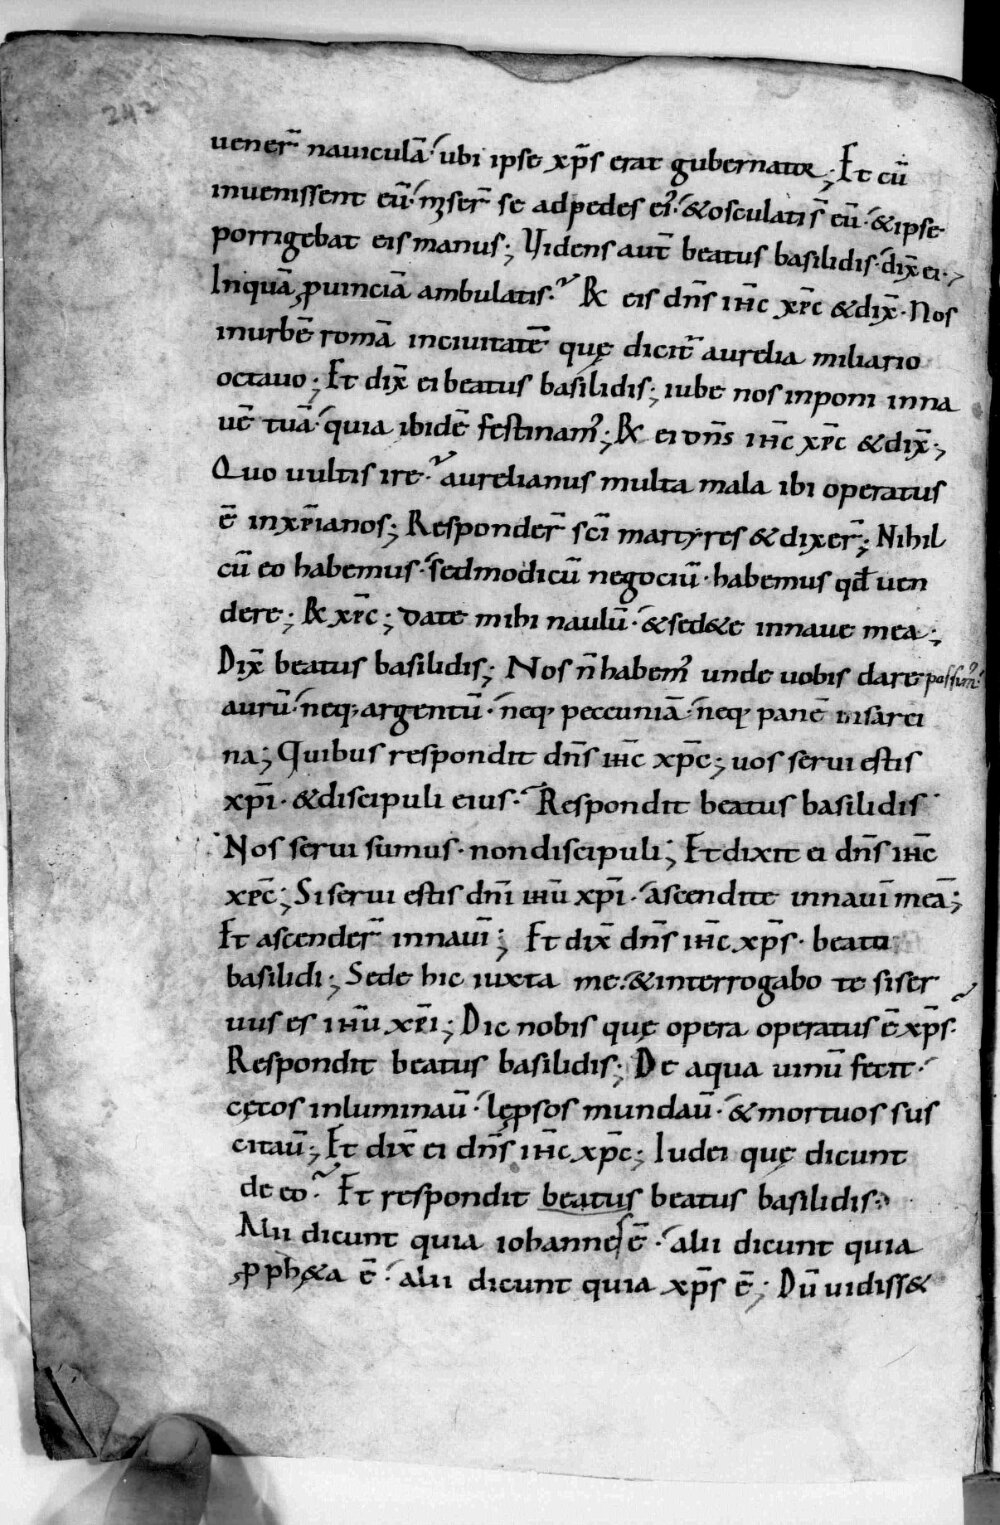 242
uener̄ nauiculā· ubi ipse xp̄s erat gubernator; Et cū
inuenissent eū· miser̄ se adpedes ei᾽· &osculati s̄ eū· &ipse
porrigebat eis manus; Uidens aut̄ beatus basilidis· dix̄ ei·
Inquā ꝓuinciā ambulatis·? R̄ eis dn̄s ih̄c xp̄c &dix̄· Nos
inurbē romā inciuitatē quę dicit̄ aurelia miliario
octauo; Et dix̄ ei beatus basilidis; iube nos inponi inna
uē tuā· quia ibidē festinam᾽; R̄ ei dn̄s ih̄c xp̄c &dix̄;
Quo uultis ire·? aurelianus multa mala ibi operatus
ē inxp̄ianos; Responder̄ sc̄i martyres &dixer̄; Nihil
cū eo habemus· sedmodicū negociū· habemus qd̄ uen
dere; R̄ xp̄c; date mihi naulū· &sed&e innaue mea;
Dix̄ beatus basilidis; Nos n̄ habem᾽ unde uobis dare possum᾽
aurū· neq; argentū· neq; peccuniā· neq; panē insarci
na; Quibus respondit dn̄s ih̄c xp̄c; uos serui estis
xp̄i· &discipuli eius·? Respondit beatus basilidis·
Nos serui sumus· nondiscipuli; Etdixit ei dn̄s ih̄c
xp̄c; Si serui estis dn̄i ih̄u xp̄i· ascendite innauī meā;
Et ascender̄ innauī; Et dix̄ dn̄s ih̄c xp̄s· beato
basilidi; Sede hic iuxta me· &interrogabo te siser
uus es ih̄u xp̄i; Dic nobis quę opera operatus ē xp̄s·
Respondit beatus basilidis; De aqua uinū fecit·
cęcos inluminaū· lępsos mundaū· &mortuos sus
citaū; Et dix̄ ei dn̄s ih̄c xp̄c; Iudei quę dicunt
de eo·? Et respondit beatus beatus basilidis;
Alii dicunt quia iohannes ē· alii dicunt quia
ꝓph&a ē· alii dicunt quia xp̄s ē; Dū uidiss&